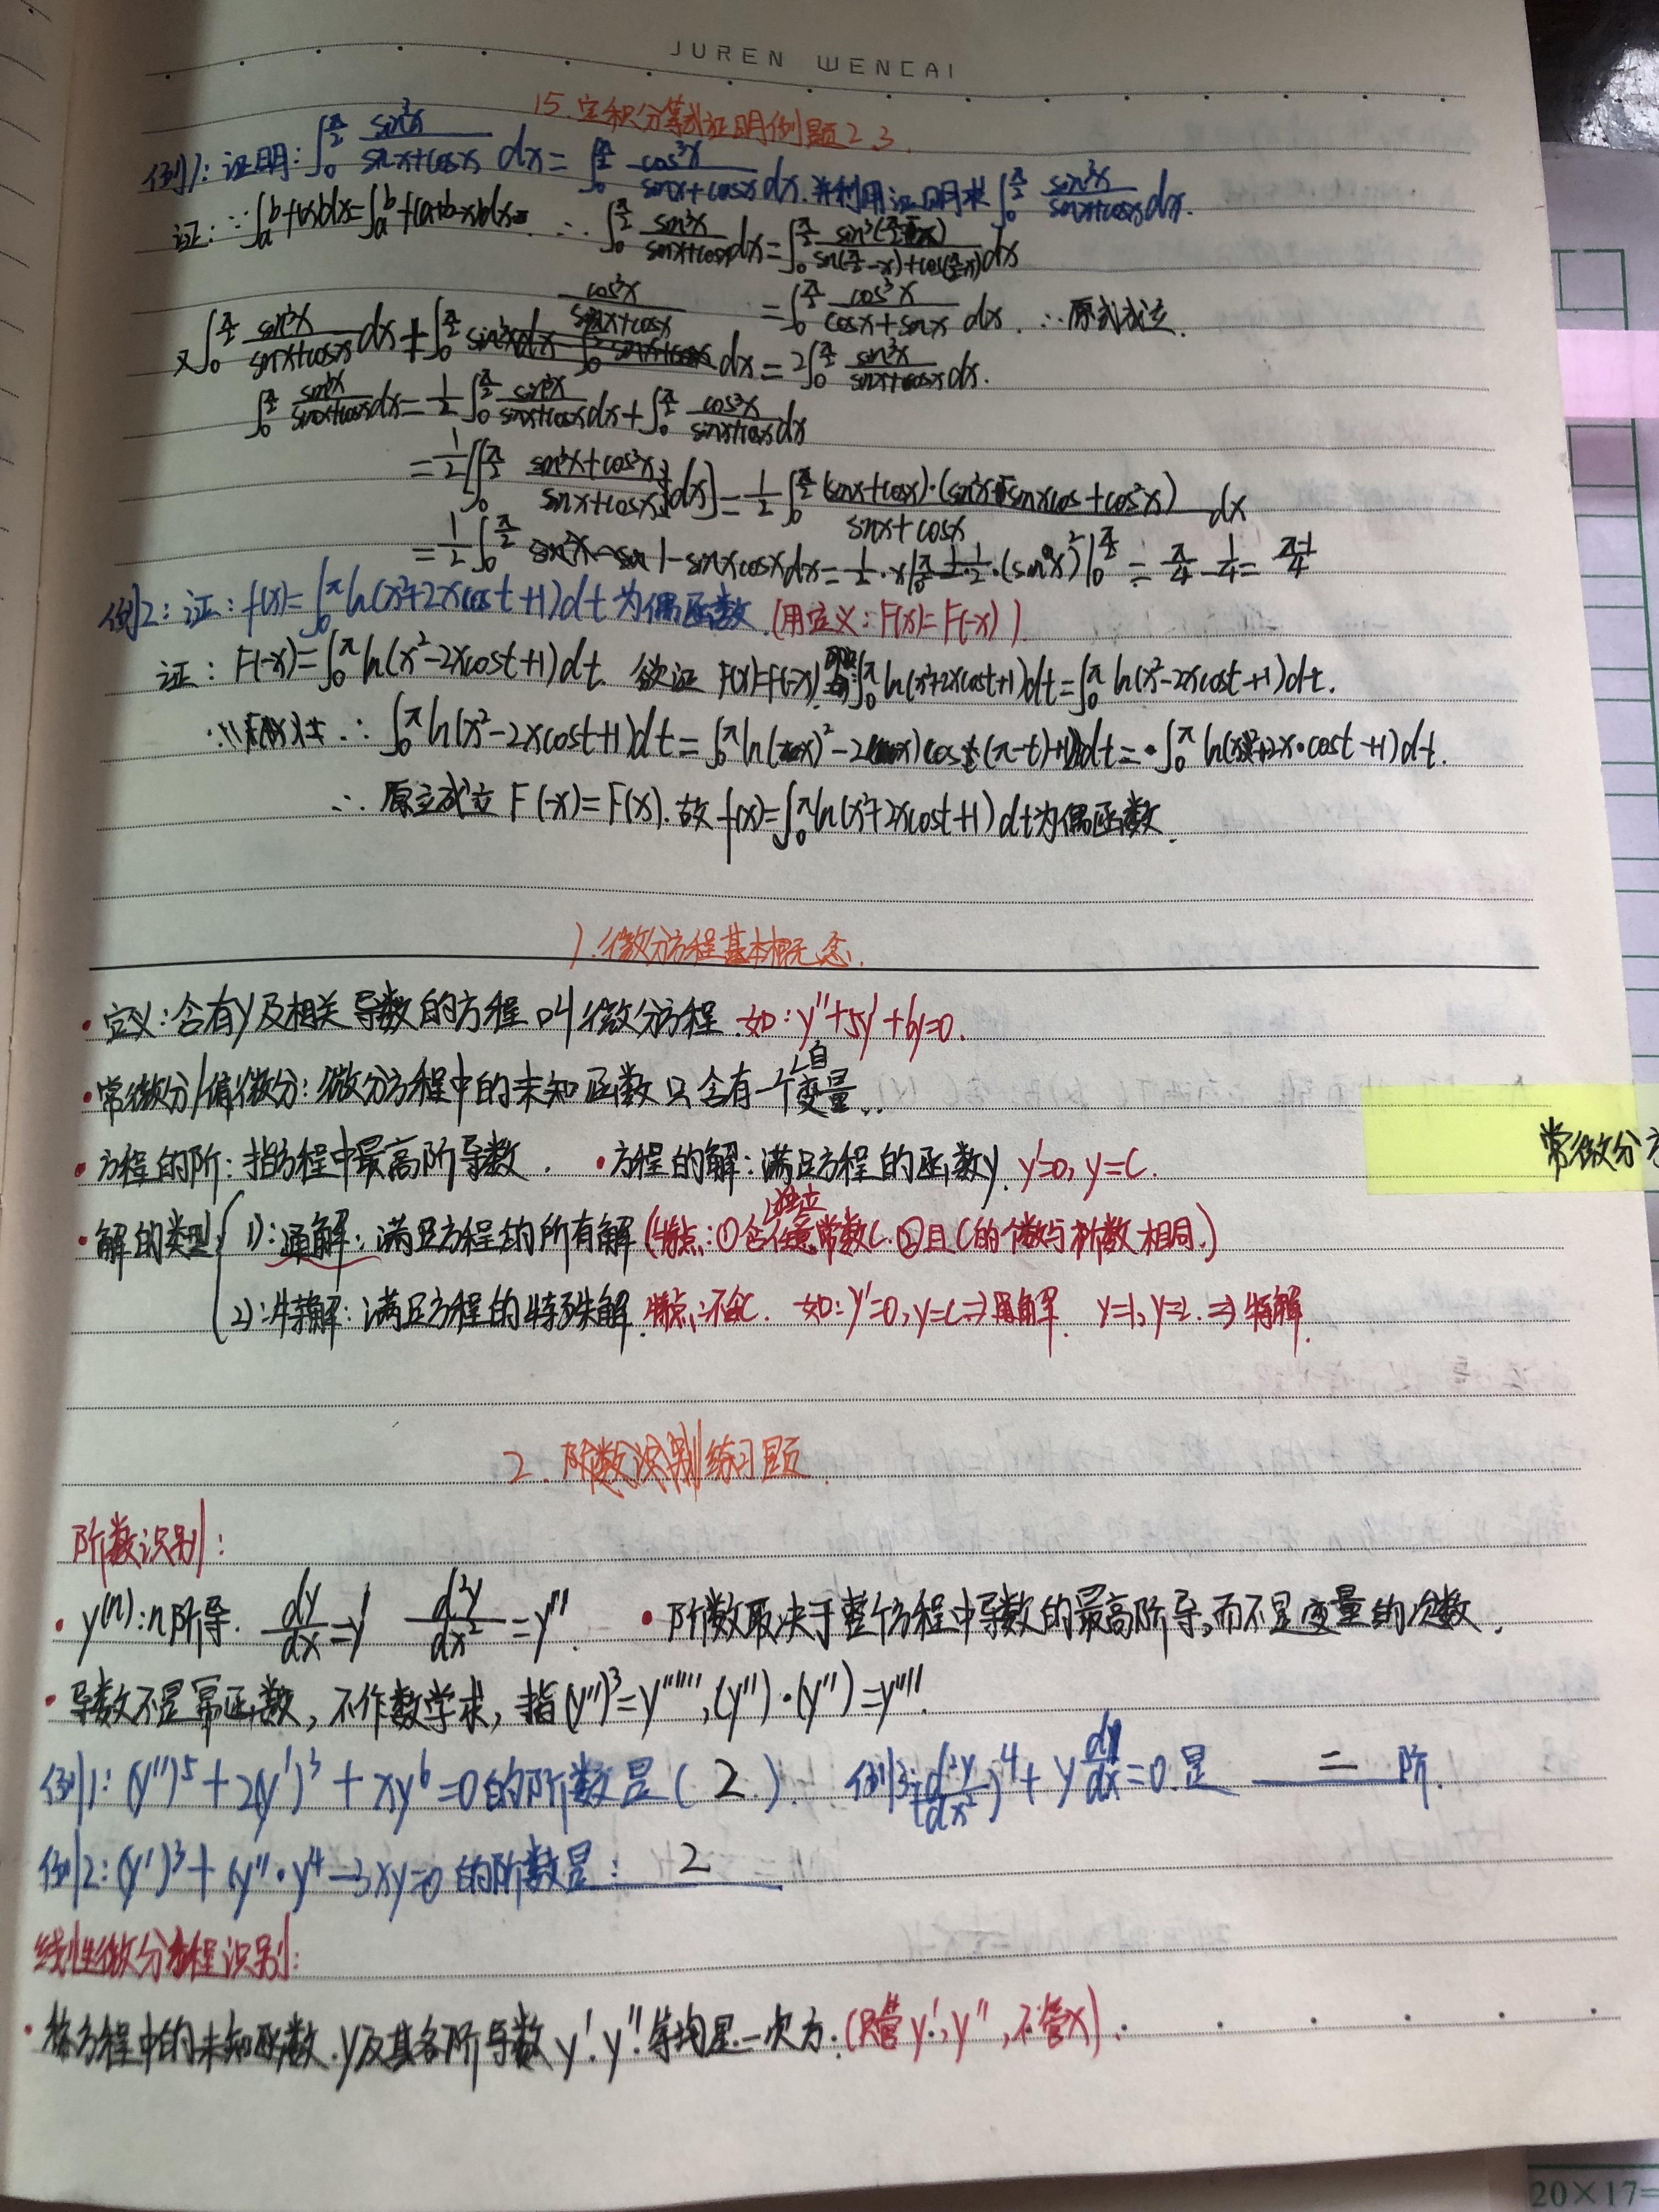 JUREN WENCAI
15.定积分等式证明例题2.3.
例1:证明:∫₀^{π/2} sin³x/(sinx+cosx) dx = ∫₀^{π/2} cos³x/(sinx+cosx) dx.并利用证明求∫₀^{π/2} sin³x/(sinx+cosx) dx.
证:∵∫ₐᵇf(x)dx=∫ₐᵇf(a+b-x)dx ∴∫₀^{π/2} sin³x/(sinx+cosx) dx=∫₀^{π/2} sin³(π/2-x)/(sin(π/2-x)+cos(π/2-x)) dx
=∫₀^{π/2} cos³x/(cosx+sinx) dx. ∴原式成立.
又∫₀^{π/2} sin³x/(sinx+cosx) dx+∫₀^{π/2} cos³x/(sinx+cosx) dx=2∫₀^{π/2} sin³x/(sinx+cosx) dx.
∫₀^{π/2} sin³x/(sinx+cosx) dx=1/2∫₀^{π/2} sin³x/(sinx+cosx) dx+∫₀^{π/2} cos³x/(sinx+cosx) dx
=1/2[∫₀^{π/2} (sin³x+cos³x)/(sinx+cosx) dx]=1/2∫₀^{π/2} (sinx+cosx)·(sin²x-sinxcos+cos²x)/(sinx+cosx) dx
=1/2∫₀^{π/2} 1-sinxcosxdx=1/2·x|₀^{π/2}-1/2·1/2·(sinx)²|₀^{π/2}=π/4-1/4=(π-1)/4
例2:证:f(x)=∫₀^π ln(x²+2xcost+1)dt为偶函数.(用定义:F(x)=F(-x))
证:F(-x)=∫₀^π ln(x²-2xcost+1)dt. 欲证F(x)=F(-x).即证∫₀^π ln(x²+2xcost+1)dt=∫₀^π ln(x²-2xcost+1)dt.
∴∫₀^π ln(x²-2xcost+1)dt=∫₀^π ln(x)²-2(x)cos(π-t)+1)dt=∫₀^π ln(x²+2x·cost+1)dt.
∴原立成立F(-x)=F(x).故f(x)=∫₀^π ln(x²+2xcost+1)dt为偶函数.
1.微分方程基本概念.
·定义:含有y及相关导数的方程叫微分方程.如:y''+5y'+6y=0.
·常微分/偏微分:微分方程中的未知函数只含有一个自变量.
·方程的阶:指方程中最高阶导数. ·方程的解:满足方程的函数y. y'=0,y=C.
常微分
·解的类型{1):通解:满足方程的所有解(特点:①含独立任意常数C.②且C的个数与阶数相同.)
2):特解:满足方程的特殊解.特点:不含C. 如:y'=0,y=C⇒通解. y=1,y=2.⇒特解.
2.阶数识别练习题.
阶数识别:
·y⁽ⁿ⁾:n阶导. dy/dx=y' d²y/dx²=y''. ·阶数取决于整个方程中导数的最高阶导,而不是变量的次数.
·导数不是幂函数,不作数学求,指(y'')³=y'''''',(y'')·(y'')=y''''.
例1:(y'')⁵+2(y')³+xy⁶=0的阶数是(2.). 例3:(d²y/dx²)⁴+y dy/dx=0.是 二 阶.
例2:(y')³+(y''·y⁴-3xy=0的阶数是: 2
线性微分方程识别:
·称方程中的未知函数.y及其各阶导数y'.y''等均是一次方.(只管y',y'',不管x).
20×17=